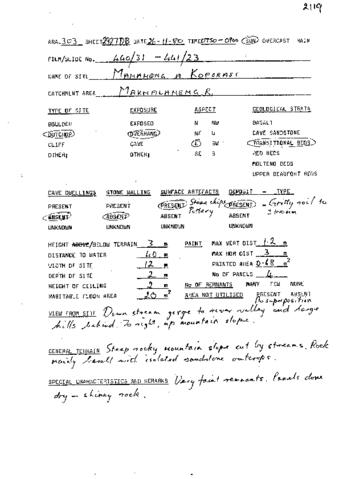 2119
ARA 303 SHEET 2927DB DATE 26-11-80 TIME 0750-0900 SUN OVERCAST RAIN
FILM/SLIDE No. 440/31 - 441/23
NAME OF SITE MAMAHENG A KOPORASI
CATCHMENT AREA MAKHALANENG R.
TYPE OF SITE EXPOSURE ASPECT GEOLOGICAL STRATA
BOULDER EXPOSED N NW BASALT
OUTCROP OVERHANG NE W CAVE SANDSTONE
CLIFF CAVE E SW TRANSITIONAL BEDS
OTHER: OTHER: SE S RED BEDS
MOLTENO BEDS
UPPER BEAUFORT BEDS
CAVE DWELLINGS STONE WALLING SURFACE ARTEFACTS DEPOSIT - TYPE
PRESENT PRESENT PRESENT Stone chips Pottery PRESENT - Gritty soil to
ABSENT ABSENT ABSENT ABSENT
UNKNOWN UNKNOWN UNKNOWN UNKNOWN
HEIGHT ABOVE/BELOW TERRAIN 3 m PAINT MAX VERT DIST 1.2 m
DISTANCE TO WATER 40 m MAX HOR DIST 3 m
WIDTH OF SITE 12 m PAINTED AREA 0.68 m²
DEPTH OF SITE 2 m No OF PANELS 4
HEIGHT OF CEILING 2 m No OF REMNANTS MANY FEW NONE
HABITABLE FLOOR AREA 20 m² AREA NOT UTILISED PRESENT ABSENT
No superposition
VIEW FROM SITE Down stream gorge to river valley and large
hills behind. To right, up mountain slope.
GENERAL TERRAIN Steep rocky mountain slope cut by streams. Rock
mainly basalt with isolated sandstone outcrops.
SPECIAL CHARACTERISTICS AND REMARKS Very faint remnants. Panels done
dry - shiney rock.